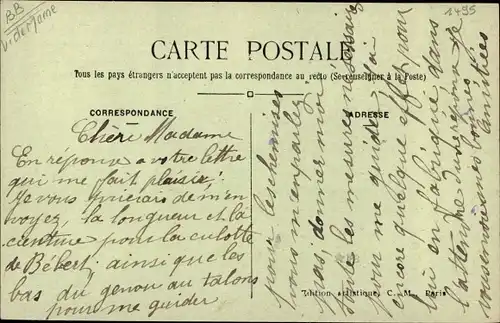 BB
1495
CARTE POSTALE
Tous les pays étrangers n'acceptent pas la correspondance au recto (Se renseigner à la Poste)
CORRESPONDANCE
ADRESSE
Chère Madame
En réponse a votre lettre
qui me fait plaisir,
Je vous prierais de m'en
voyez la longueur et la
ceinture pour la culotte
de Bébert ainsi que les
bas du genou au talons
pour me guider
pour les chemises
vous m'en parlez
pas donner moi
toute les mesures nécessaire
pour me guider j'ai
encore quelque effet pour
lui en fabrique dans
l'attendre d'une réponse
amitiées
Edition artistique, C. M., Paris